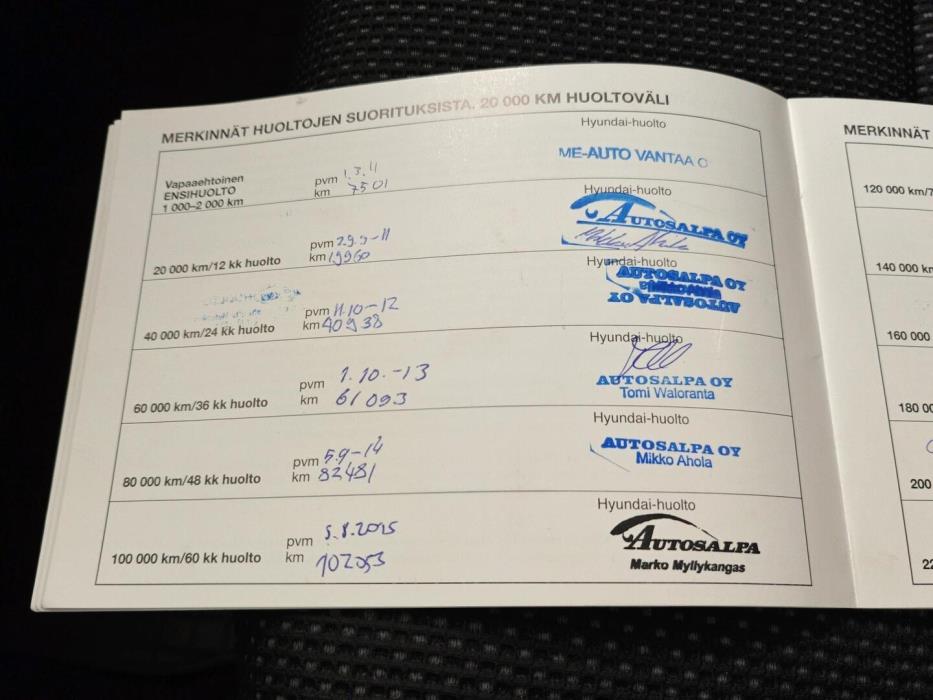 MERKINNÄT HUOLTOJEN SUORITUKSISTA. 20 000 KM HUOLTOVÄLI
Vapaaehtoinen
ENSIHUOLTO
1 000–2 000 km
pvm 1.3.11
km 7501
Hyundai-huolto
ME-AUTO VANTAA O
20 000 km/12 kk huolto
pvm 29.9-11
km 19960
Hyundai-huolto
AUTOSALPA OY
40 000 km/24 kk huolto
pvm 11.10-12
km 40938
Hyundai-huolto
AUTOSALPA OY
AUTOSALPA OY
60 000 km/36 kk huolto
pvm 1.10.-13
km 61093
Hyundai-huolto
AUTOSALPA OY
Tomi Waloranta
80 000 km/48 kk huolto
pvm 5.9-14
km 82481
Hyundai-huolto
AUTOSALPA OY
Mikko Ahola
100 000 km/60 kk huolto
pvm 5.8.2015
km 102053
Hyundai-huolto
AUTOSALPA
Marko Myllykangas
MERKINNÄT
120 000 km/7
140 000 km
160 000
180 00
200
22